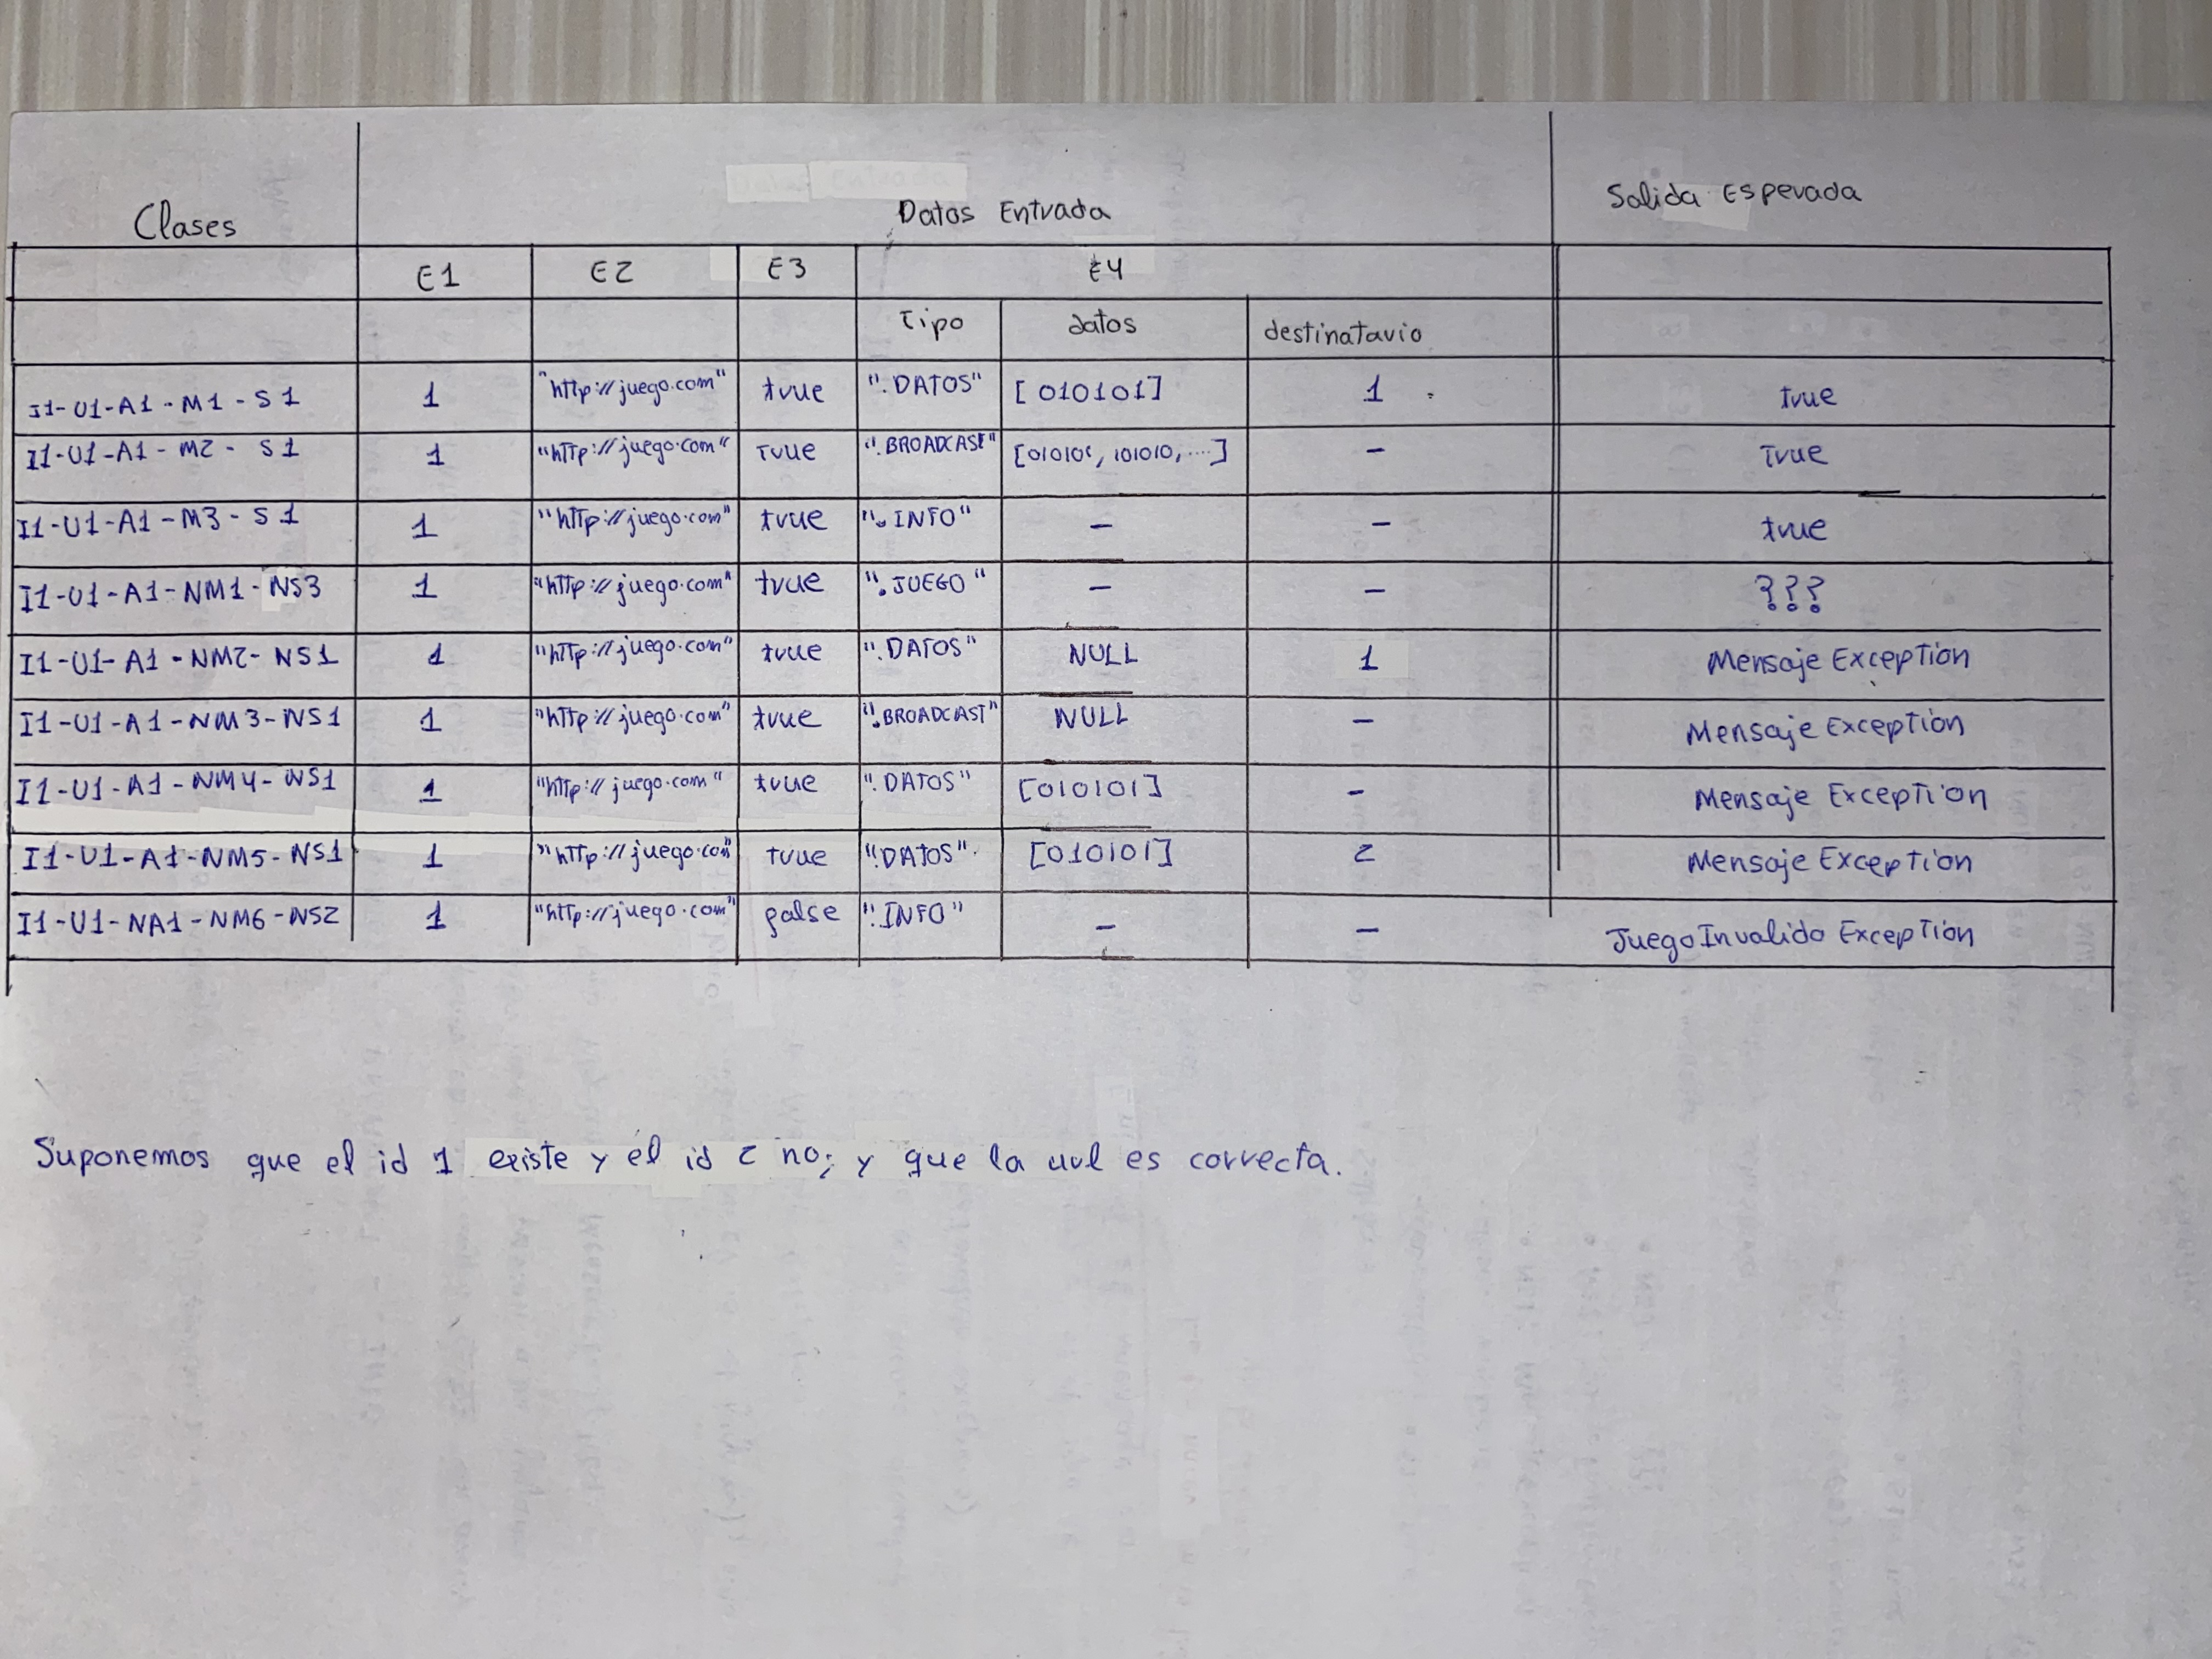 Clases Datos Entrada Salida Esperada
E1 E2 E3 E4
Tipo datos destinatario
I1-U1-A1-M1-S1 1 "http://juego.com" true "DATOS" [010101] 1 true
I1-U1-A1-M2-S1 1 "http://juego.com" true "BROADCAST" [010101, 101010, ....] - true
I1-U1-A1-M3-S1 1 "http://juego.com" true "INFO" - - true
I1-U1-A1-NM1-NS3 1 "http://juego.com" true "JUEGO" - - ???
I1-U1-A1-NM2-NS1 1 "http://juego.com" true "DATOS" NULL 1 Mensaje Exception
I1-U1-A1-NM3-NS1 1 "http://juego.com" true "BROADCAST" NULL - Mensaje Exception
I1-U1-A1-NM4-NS1 1 "http://juego.com" true "DATOS" [010101] - Mensaje Exception
I1-U1-A1-NM5-NS1 1 "http://juego.com" true "DATOS" [010101] 2 Mensaje Exception
I1-U1-NA1-NM6-NS2 1 "http://juego.com" false "INFO" - - JuegoInvalido Exception
Suponemos que el id 1 existe y el id 2 no; y que la url es correcta.